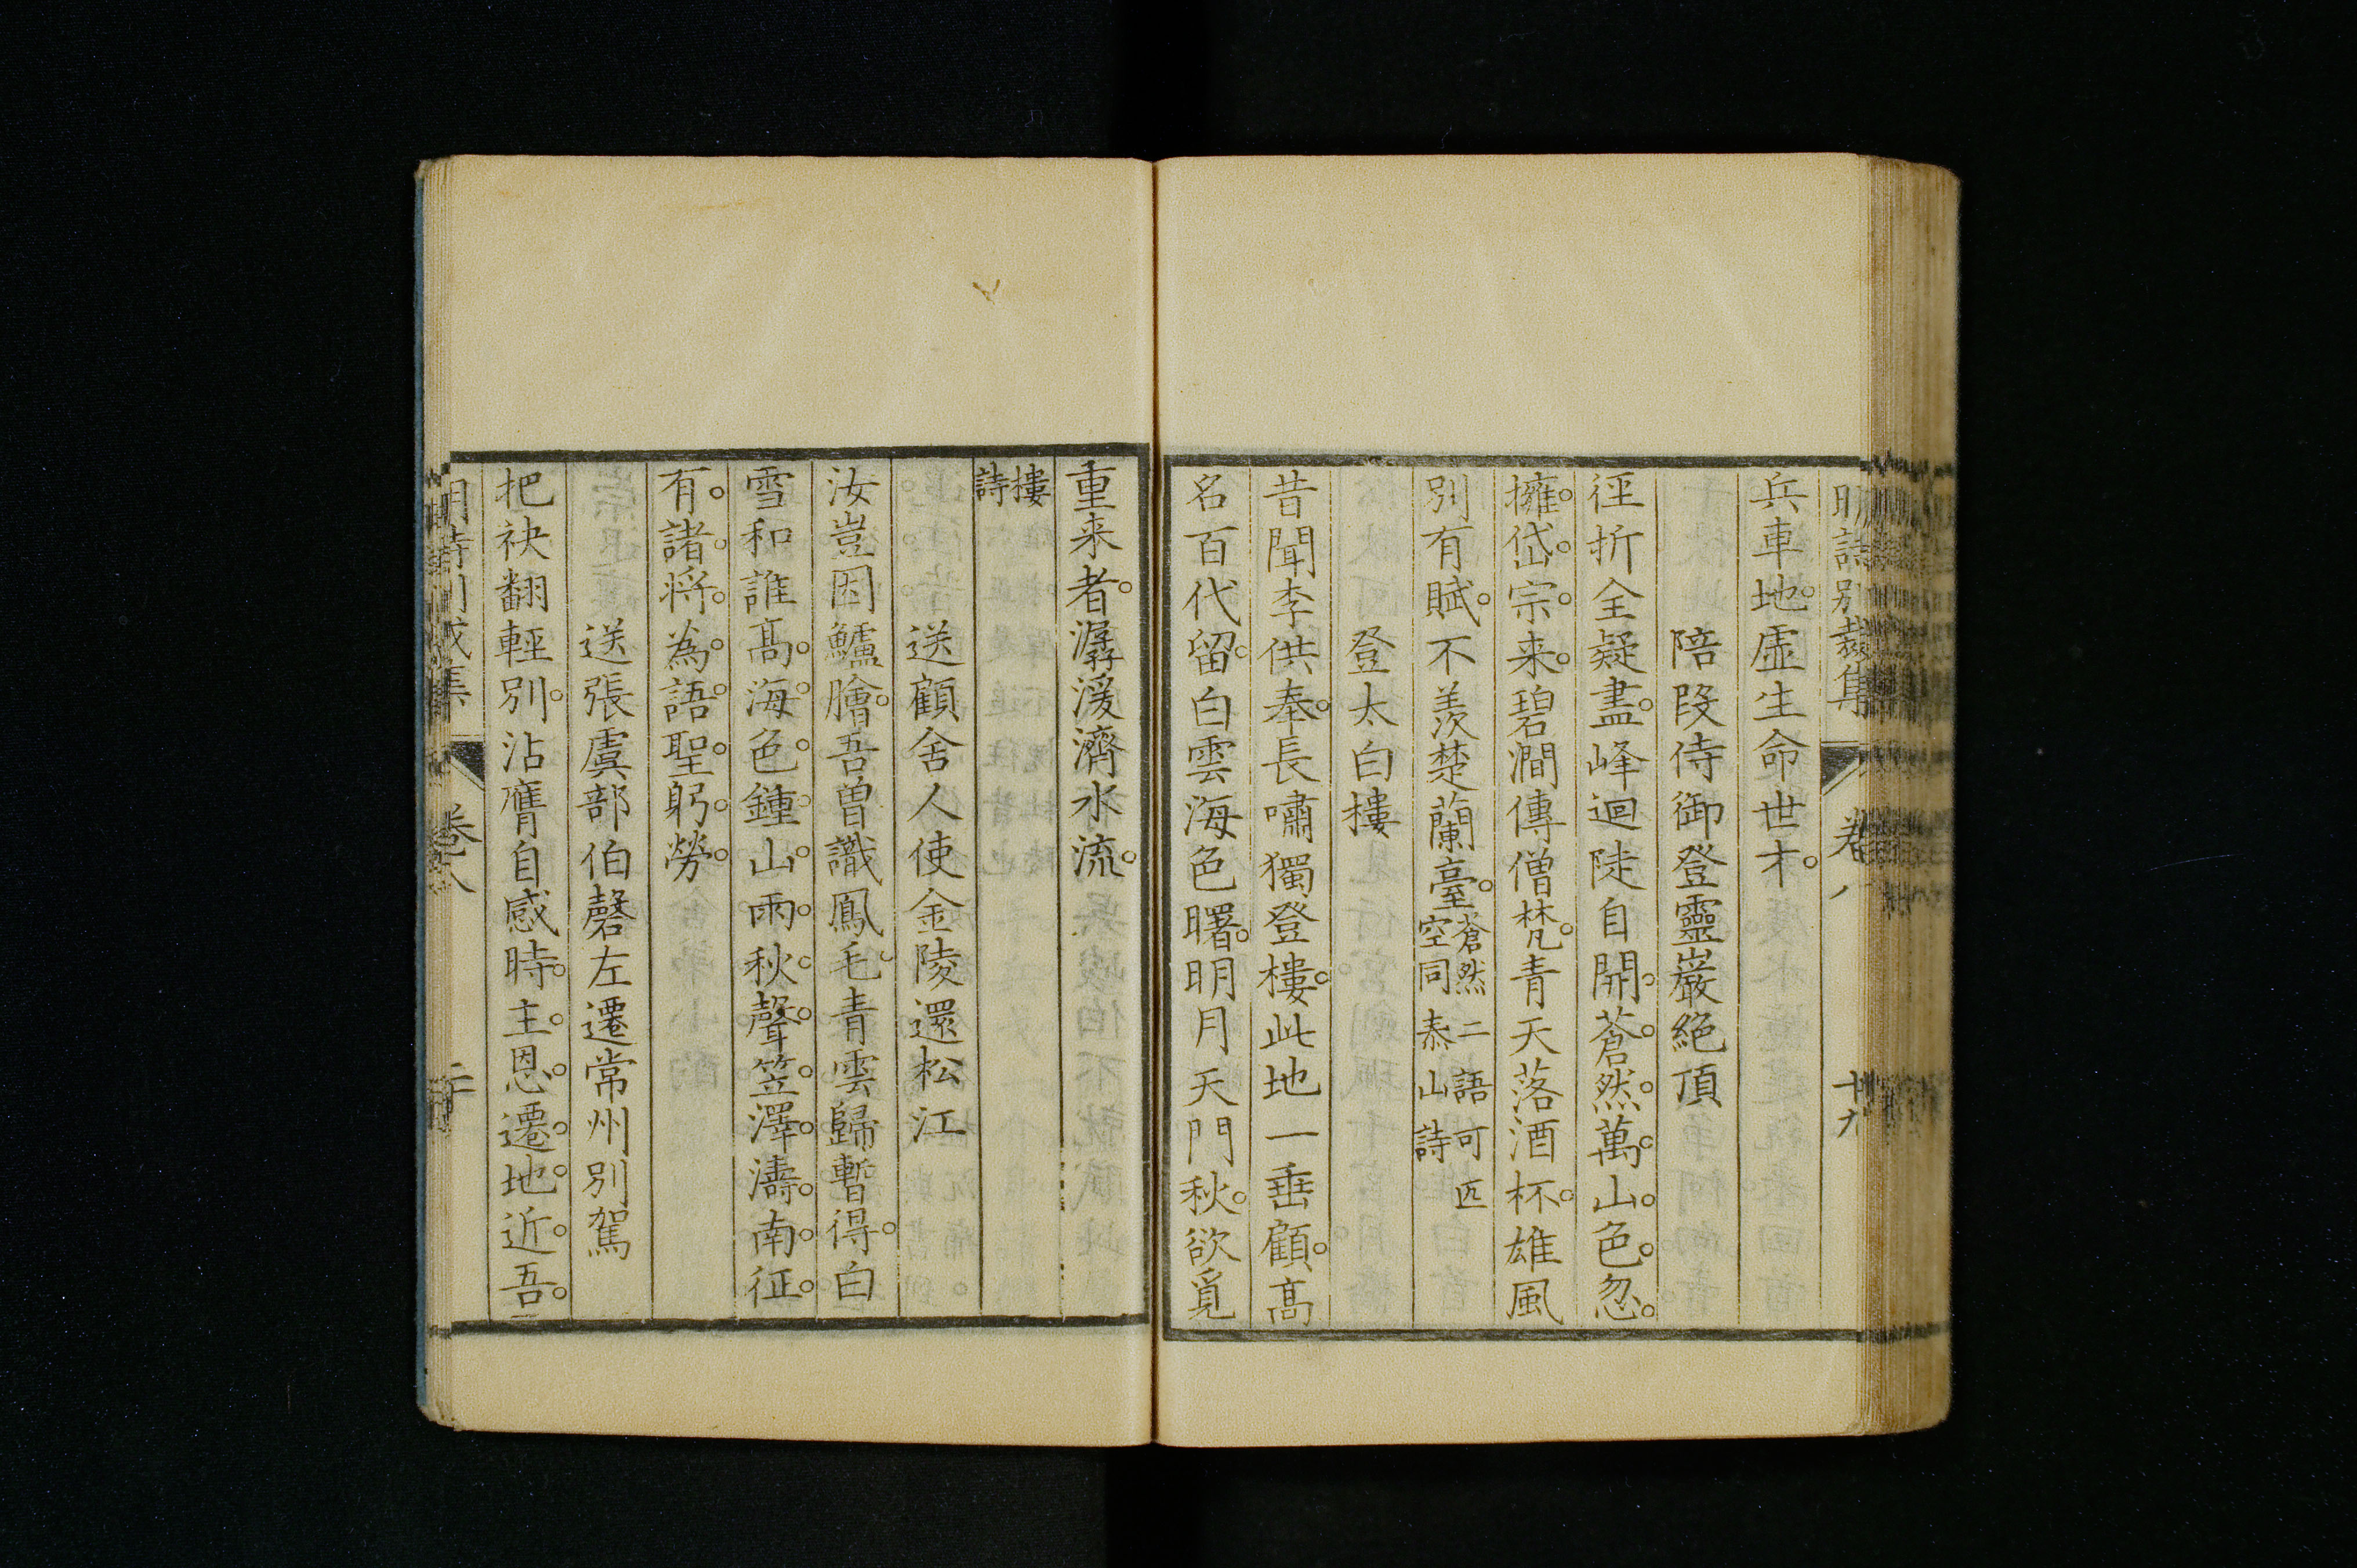 明詩別裁集 卷八 十九
兵車地虛生命世才。
陪段侍御登靈巖絕頂
徑折全疑盡。峰迴陡自開。蒼然萬山色。忽。
擁岱宗来。碧澗傳僧梵。青天落酒杯。雄風
別有賦。不羨楚蘭臺。蒼然二語可匹
空同泰山詩
登太白樓
昔聞李供奉。長嘯獨登樓。此地一垂顧。高
名百代留。白雲海色曙。明月天門秋。欲覓
重来者。潺湲濟水流。
樓
詩
送顧舍人使金陵還松江
汝豈因鱸膾。吾曽識鳳毛。青雲歸暫得。白
雪和誰高。海色鍾山雨。秋聲笠澤濤。南征
有諸將。為語聖躬勞。
送張虞部伯磬左遷常州別駕
把袂翻輕別。沾膺自感時。主恩遷地近。吾
明詩別裁集 卷八 二十